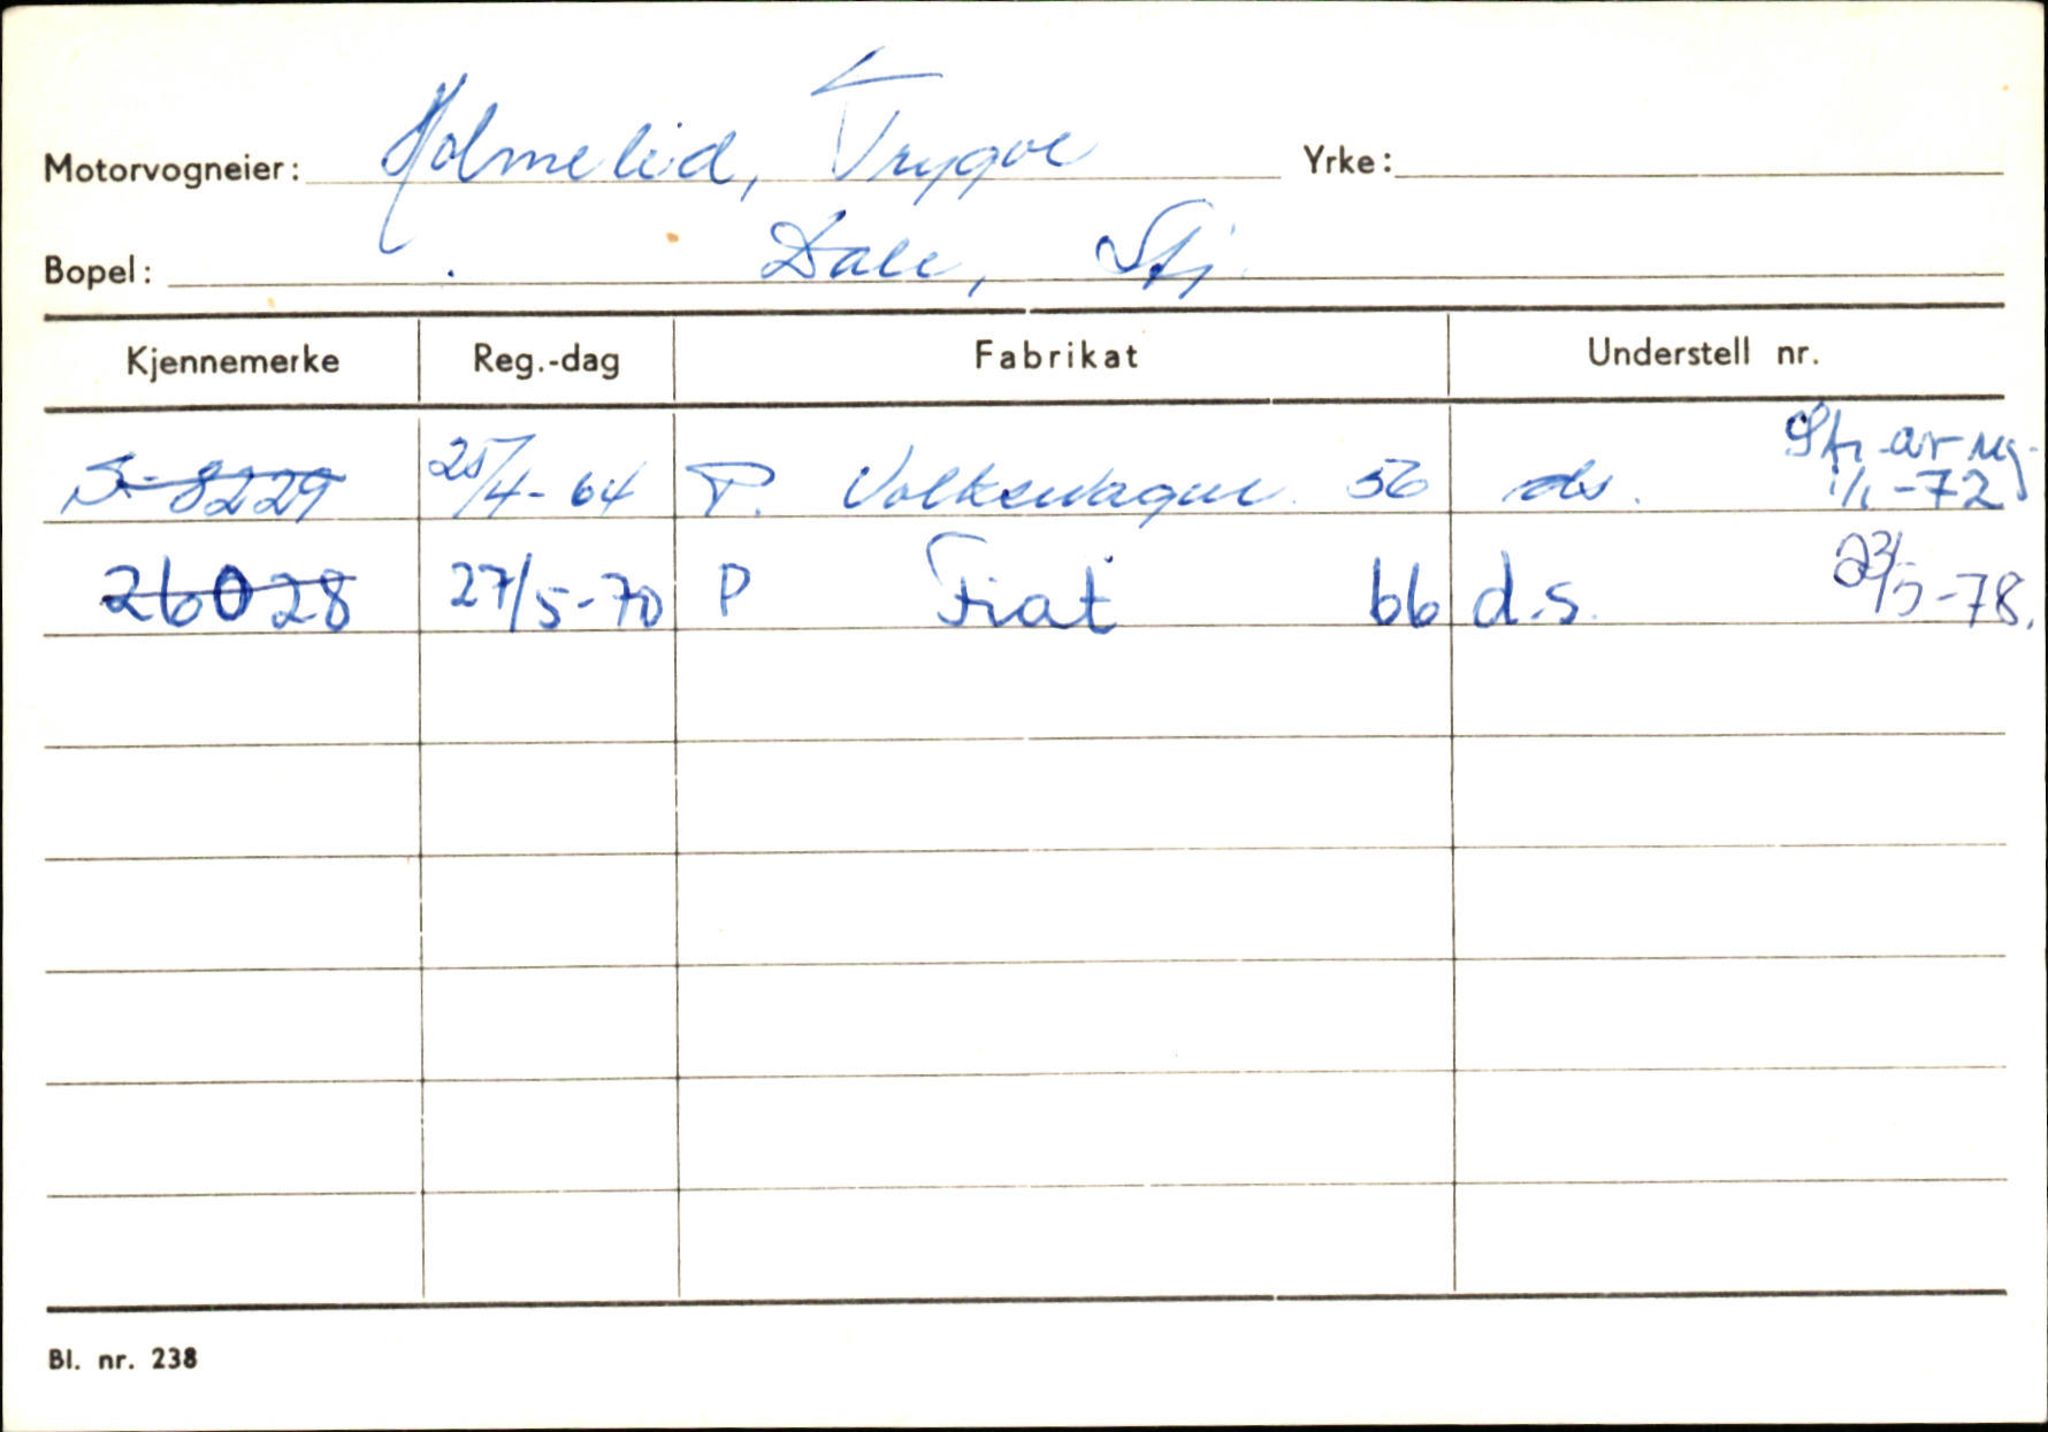 Motorvogneier: Holmelid, Trygve Yrke:
Bopel: Dale, Sfj.
Kjennemerke Reg.-dag Fabrikat Understell nr.
S-8229 25/4-64 P. Volkswagen 56 ds. Sfj. av reg. 1/1-72
26028 27/5-70 P Fiat 66 d.s. 23/5-78.
Bl. nr. 238